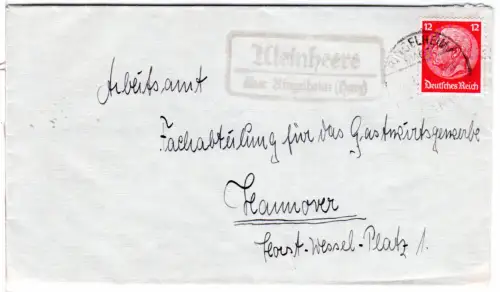 Kleinheere
über Ringelheim (Harz)
RINGELHEIM
12 12
Deutsches Reich
Arbeitsamt
Fachabteilung für das Gastwirtsgewerbe
Hannover
Horst-Wessel-Platz 1.